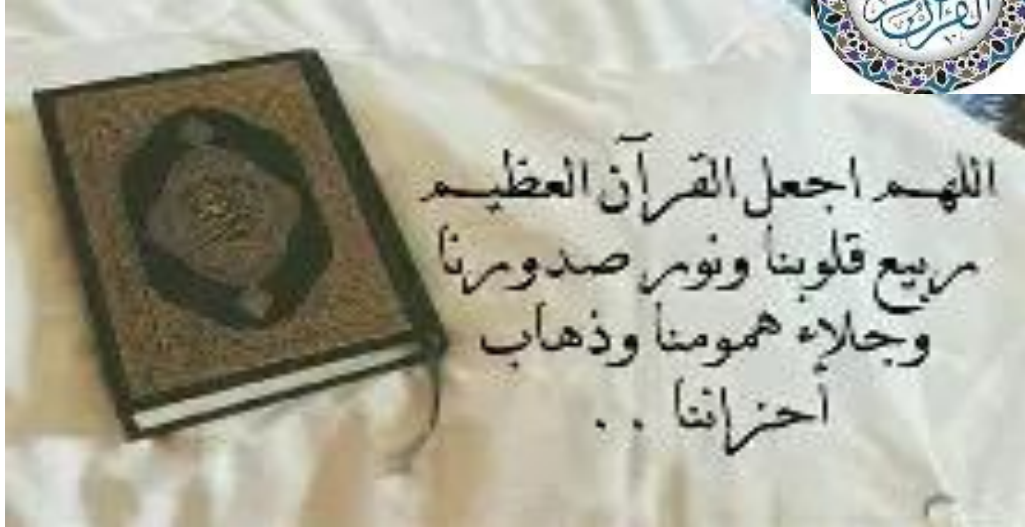 القرآن
اللهم اجعل القرآن العظيم
ربيع قلوبنا ونور صدورنا
وجلاء همومنا وذهاب
أحزاننا . .